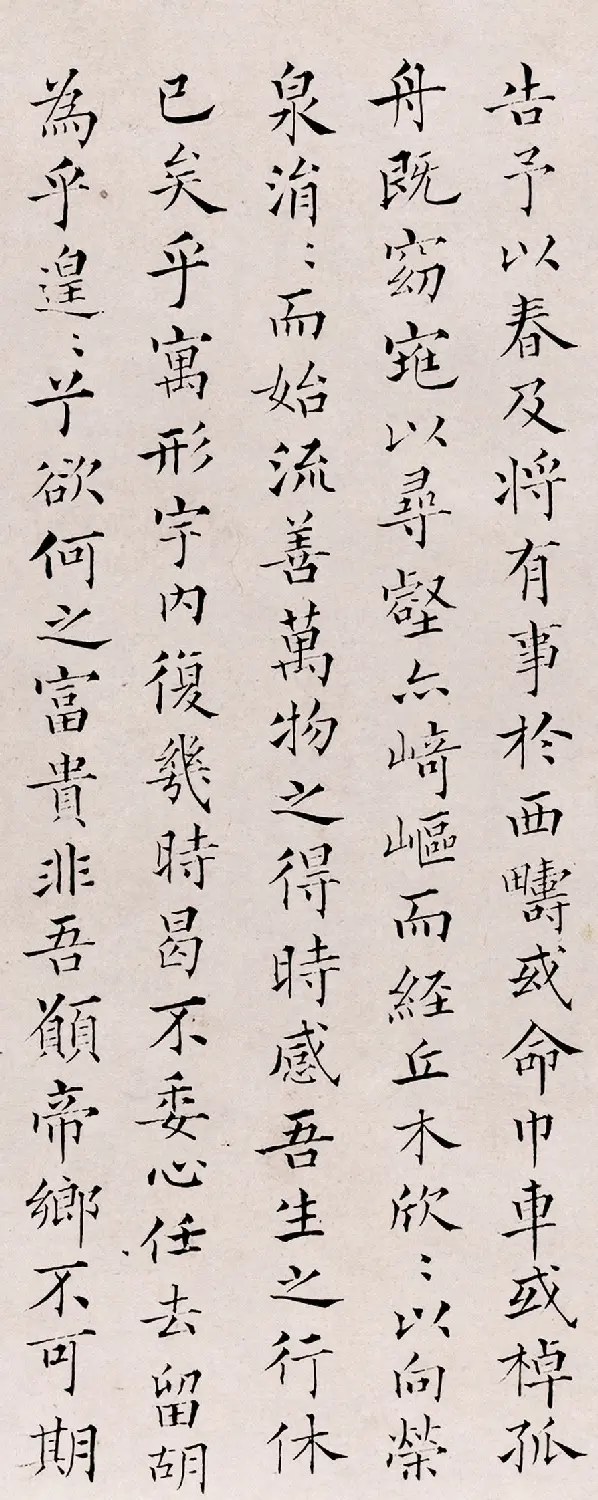 告予以春及将有事於西疇或命巾車或棹孤
舟既窈窕以尋壑亦崎嶇而経丘木欣〻以向榮
泉涓〻而始流善萬物之得時感吾生之行休
已矣乎寓形宇内復幾時曷不委心任去留胡
為乎遑〻兮欲何之富貴非吾願帝鄉不可期